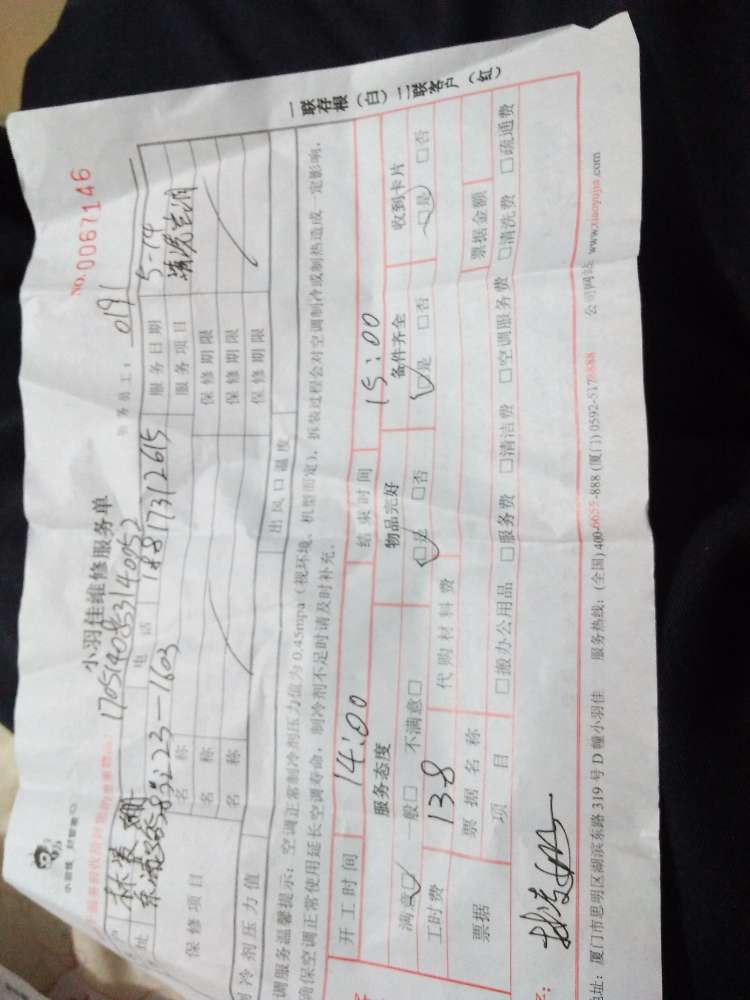 NO.0067146
小羽佳维修服务单
17051408531400952
服务员工: 0191
电话 18817312615 服务日期 5-14
3223-1603 服务项目 清洗空调
保修项目
名称 保修期限
名称 保修期限
名称 保修期限
制冷剂压力值 出风口温度
调服务温馨提示:空调正常制冷剂压力值为0.45mpa(视环境、机型而定),拆装过程会对空调制冷或制热造成一定影响,
确保空调正常使用延长空调寿命,制冷剂不足时请及时补充。
一联存根(白)二联客户(红)
开工时间 14:00 结束时间 15:00
服务态度 物品完好 备件齐全 收到卡片
满意□ 一般□ 不满意□ □是 □否 □是 □否 □是 □否
工时费 138 代购材料费
票据 票据名称 票据金额
项目 □搬办公用品 □服务费 □清洁费 □空调服务费 □清洗费 □疏通费
地址:厦门市思明区湖滨东路319号D幢小羽佳 服务热线:(全国)400-6655-888(厦门)0592-5178888 公司网站:www.xiaoyujia.com